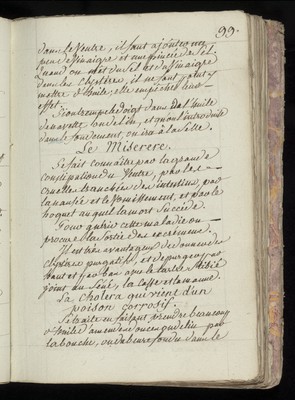 99.
dans le Ventre, il faut ajouter un
peu de vinaigre et une pincée de sel.
Quand on met du Sel et du Vinaigre
dans les Clystères, il ne faut point y
mettre d'huile, elle empêcheroit leur
effet.
Si on trempe le doigt dans de l'huile
de navette ou de lin, et qu'on l'introduise
dans le fondement, on ira à la selle.
Le Miserere.
Se fait connaître par la grande
constipation du Ventre, par les
cruelles tranchées des intestins, par
la nausée et le Vomissement, et par le
hoquet auquel la mort succède.
Pour guérir cette maladie on
procure la sortie des excrémens.
Il est très avantageux de donner des
clystères purgatifs, et de purger par
haut et par bas avec le tartre Stibié
joint au Séné, la Casse et la manne.
La Cholera qui vient d'un
poison Corrosif.
Se traite en faisant prendre beaucoup
d'huile d'amendes douces par
la bouche, ou du beure fondu dans le